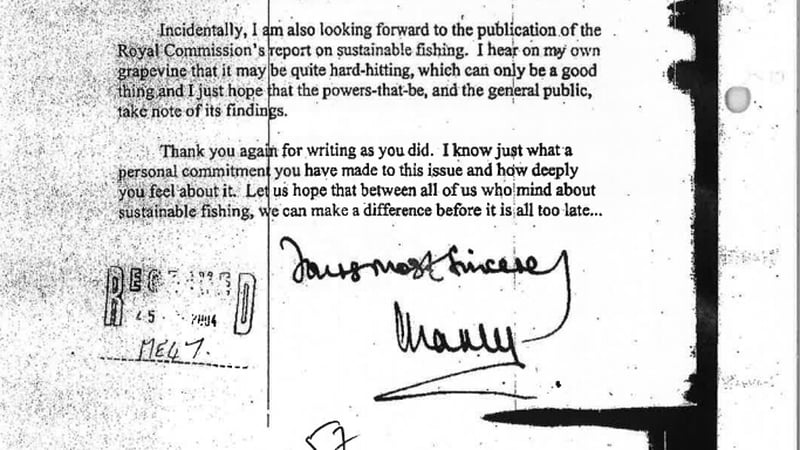 Incidentally, I am also looking forward to the publication of the
Royal Commission's report on sustainable fishing. I hear on my own
grapevine that it may be quite hard-hitting, which can only be a good
thing and I just hope that the powers-that-be, and the general public,
take note of its findings.
Thank you again for writing as you did. I know just what a
personal commitment you have made to this issue and how deeply
you feel about it. Let us hope that between all of us who mind about
sustainable fishing, we can make a difference before it is all too late...
Yours most sincerely